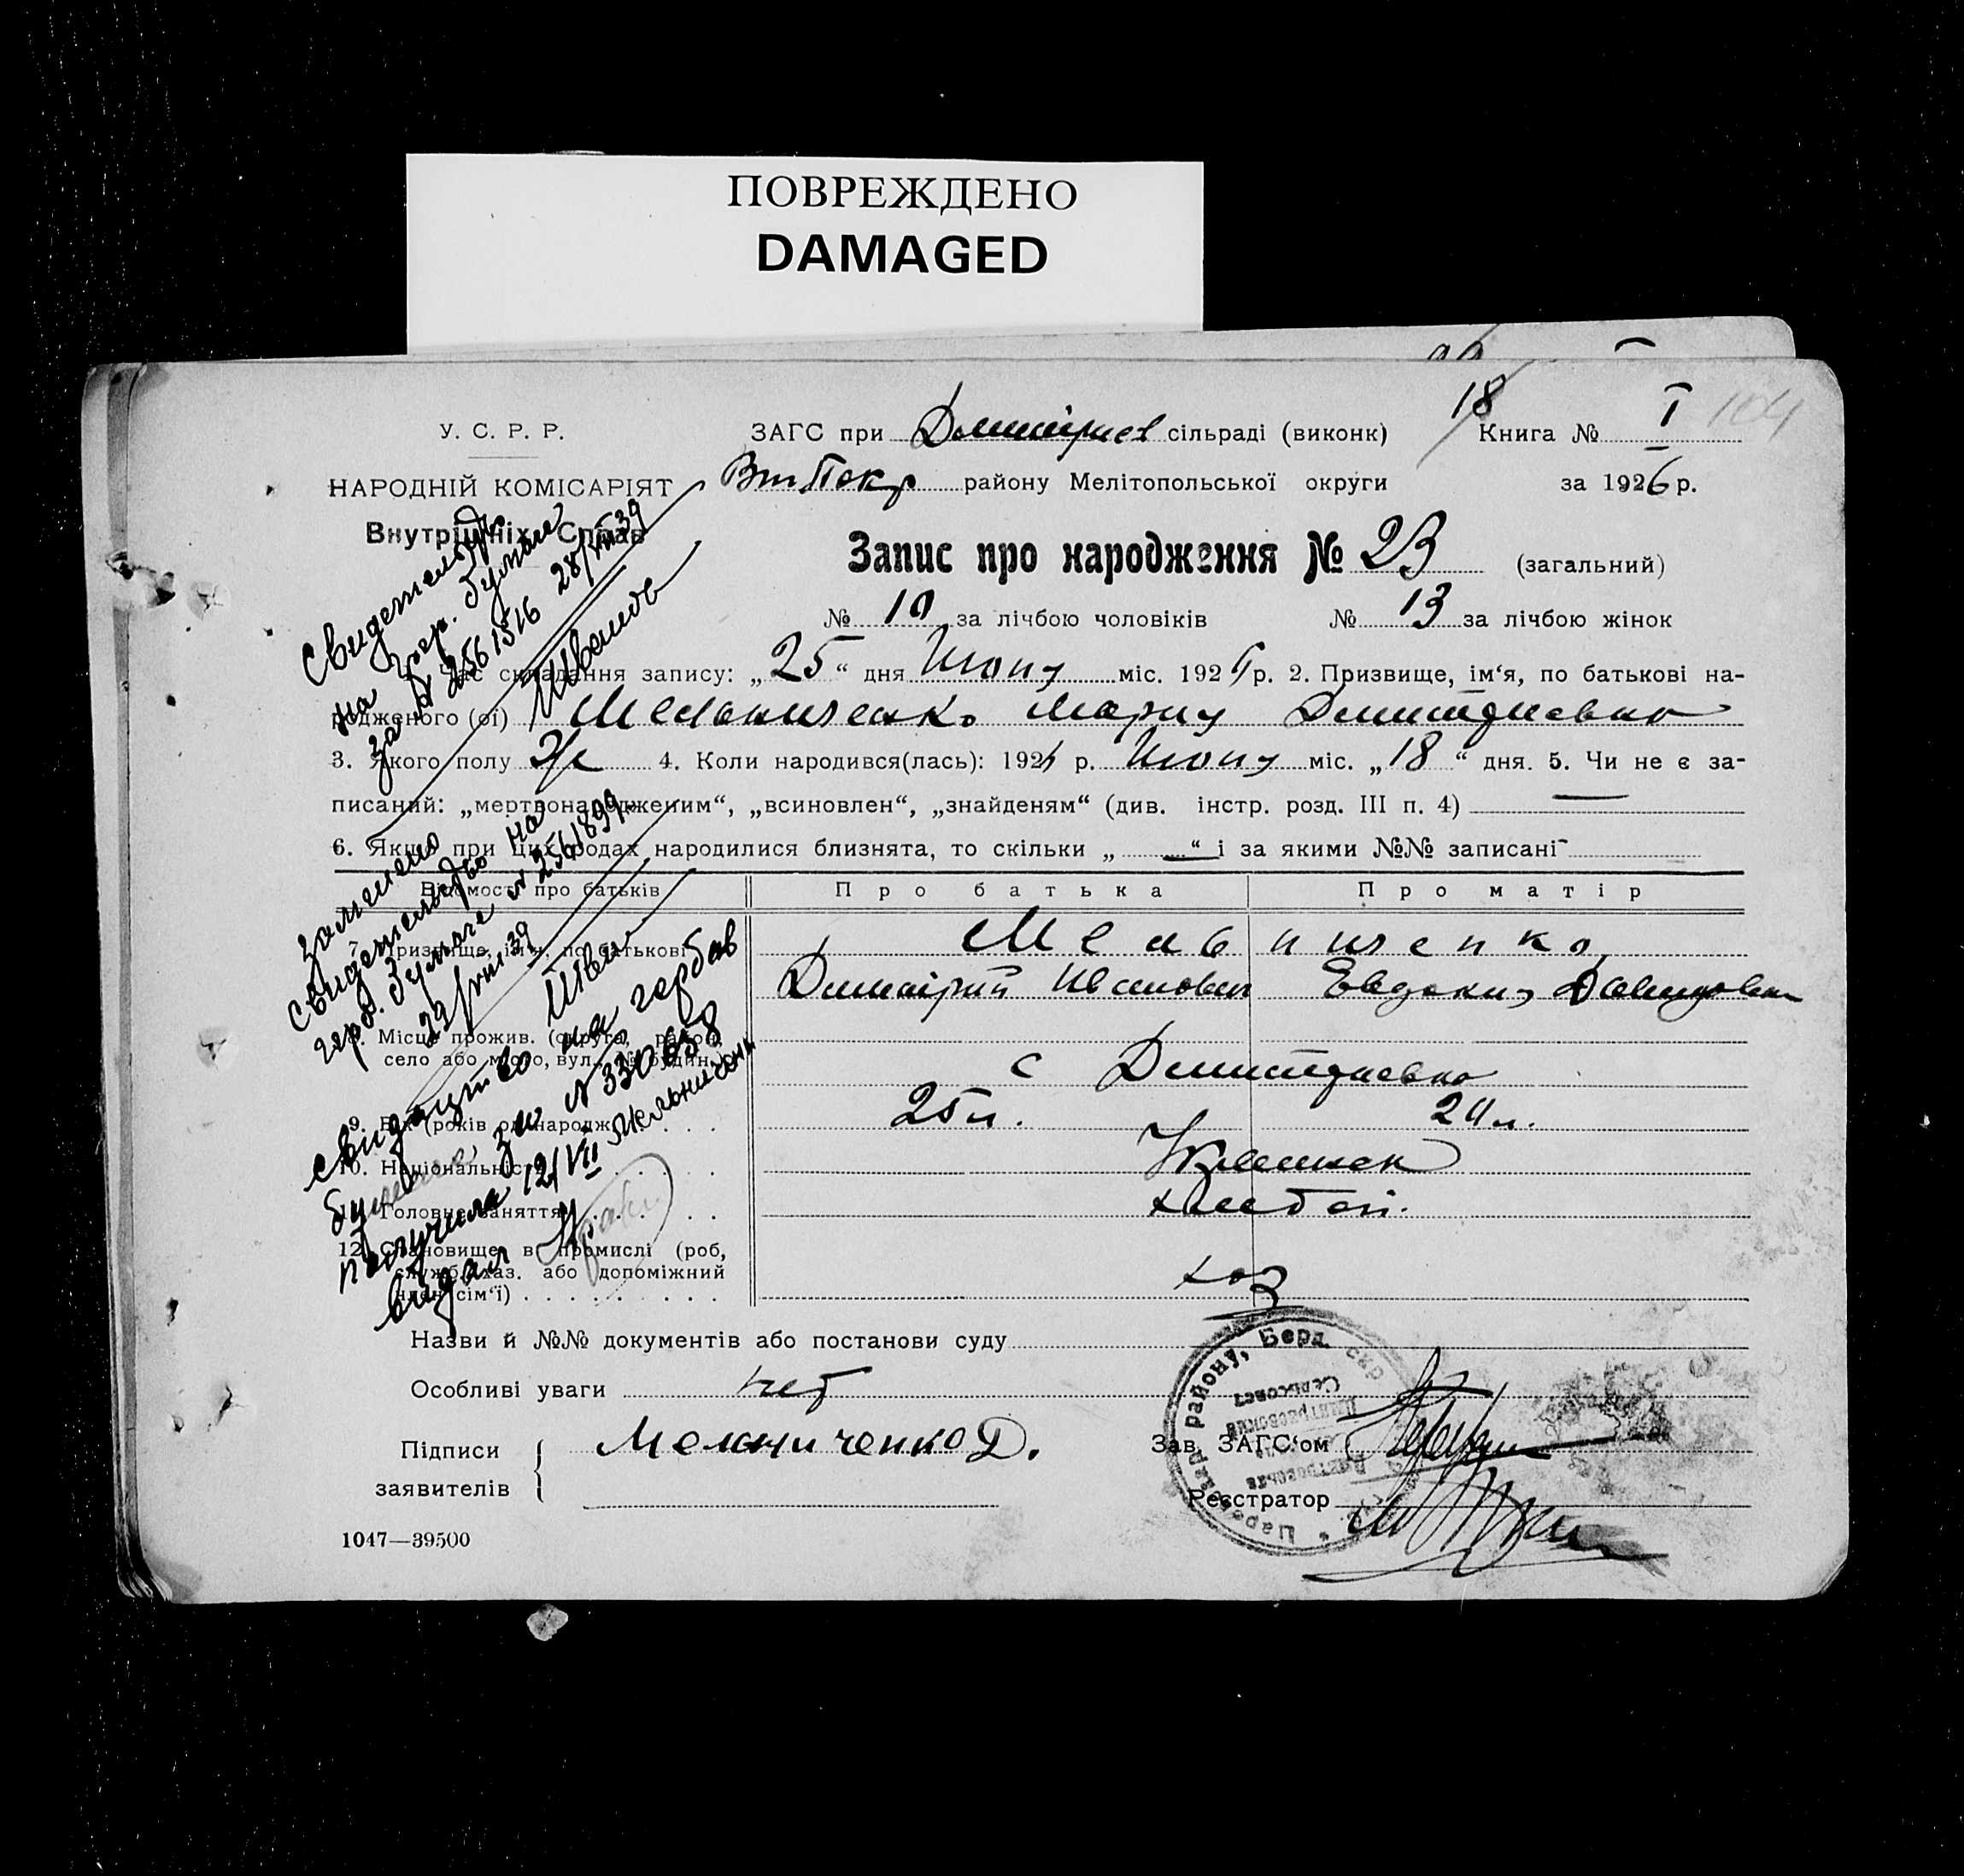 ПОВРЕЖДЕНО
DAMAGED
18
У. С. Р. Р.
ЗАГС при Дмитріев сільраді (виконк)
Книга № I 104
НАРОДНІЙ КОМІСАРІЯТ
ВтПокр району Мелітопольської округи
за 1926 р.
Внутрішніх Справ
Запис про народження № 23 (загальний)
№ 10 за лічбою чоловіків № 13 за лічбою жінок
Час складання запису: „25“ дня Июня міс. 1926 р. 2. Призвище, ім‘я, по батькові на-
родженого (ої) Мельниченко Мария Дмитриевна
3. Якого полу Ж 4. Коли народився(лась): 192 р. Июня міс. „18“ дня. 5. Чи не є за-
писаний: „мертвонародженим“, „всиновлен“, „знайденям“ (див. інстр. розд. III п. 4) —
6. Якщо при цих родах народилися близнята, то скільки „—“ і за якими №№ записані
Відомості про батьків
Про батька
Про матір
7. Призвище, ім‘я, по батькові
Мельниченко
Дмитрий Иванович Евдокия Давидовна
8. Місце прожив. (округа, район,
село або місто, вул., № будин.)
с Дмитриевка
9. Вік (років од народж.) 25 л. 24 л.
10. Національність
11. Головне заняття хлебоп.
12. Становище в промислі (роб,
служб. хаз. або допоміжний
член сім‘ї) хоз
Назви й №№ документів або постанови суду
Особливі уваги нет
Підписи
заявителів
Мельниченко Д.
Зав. ЗАГС‘ом
Реєстратор
1047—39500
Свидетельство
на гер. бумаге
за № 2561516 28/VIII 39
Иванов
заменено
свидетельство на
герб. бумаге № 2561899
29/VIII 39
свидоцтво на гербов
бумаге за № 330658
получила 12/VII Мельниченко
видал
району, Берд. окр
Сельсовет